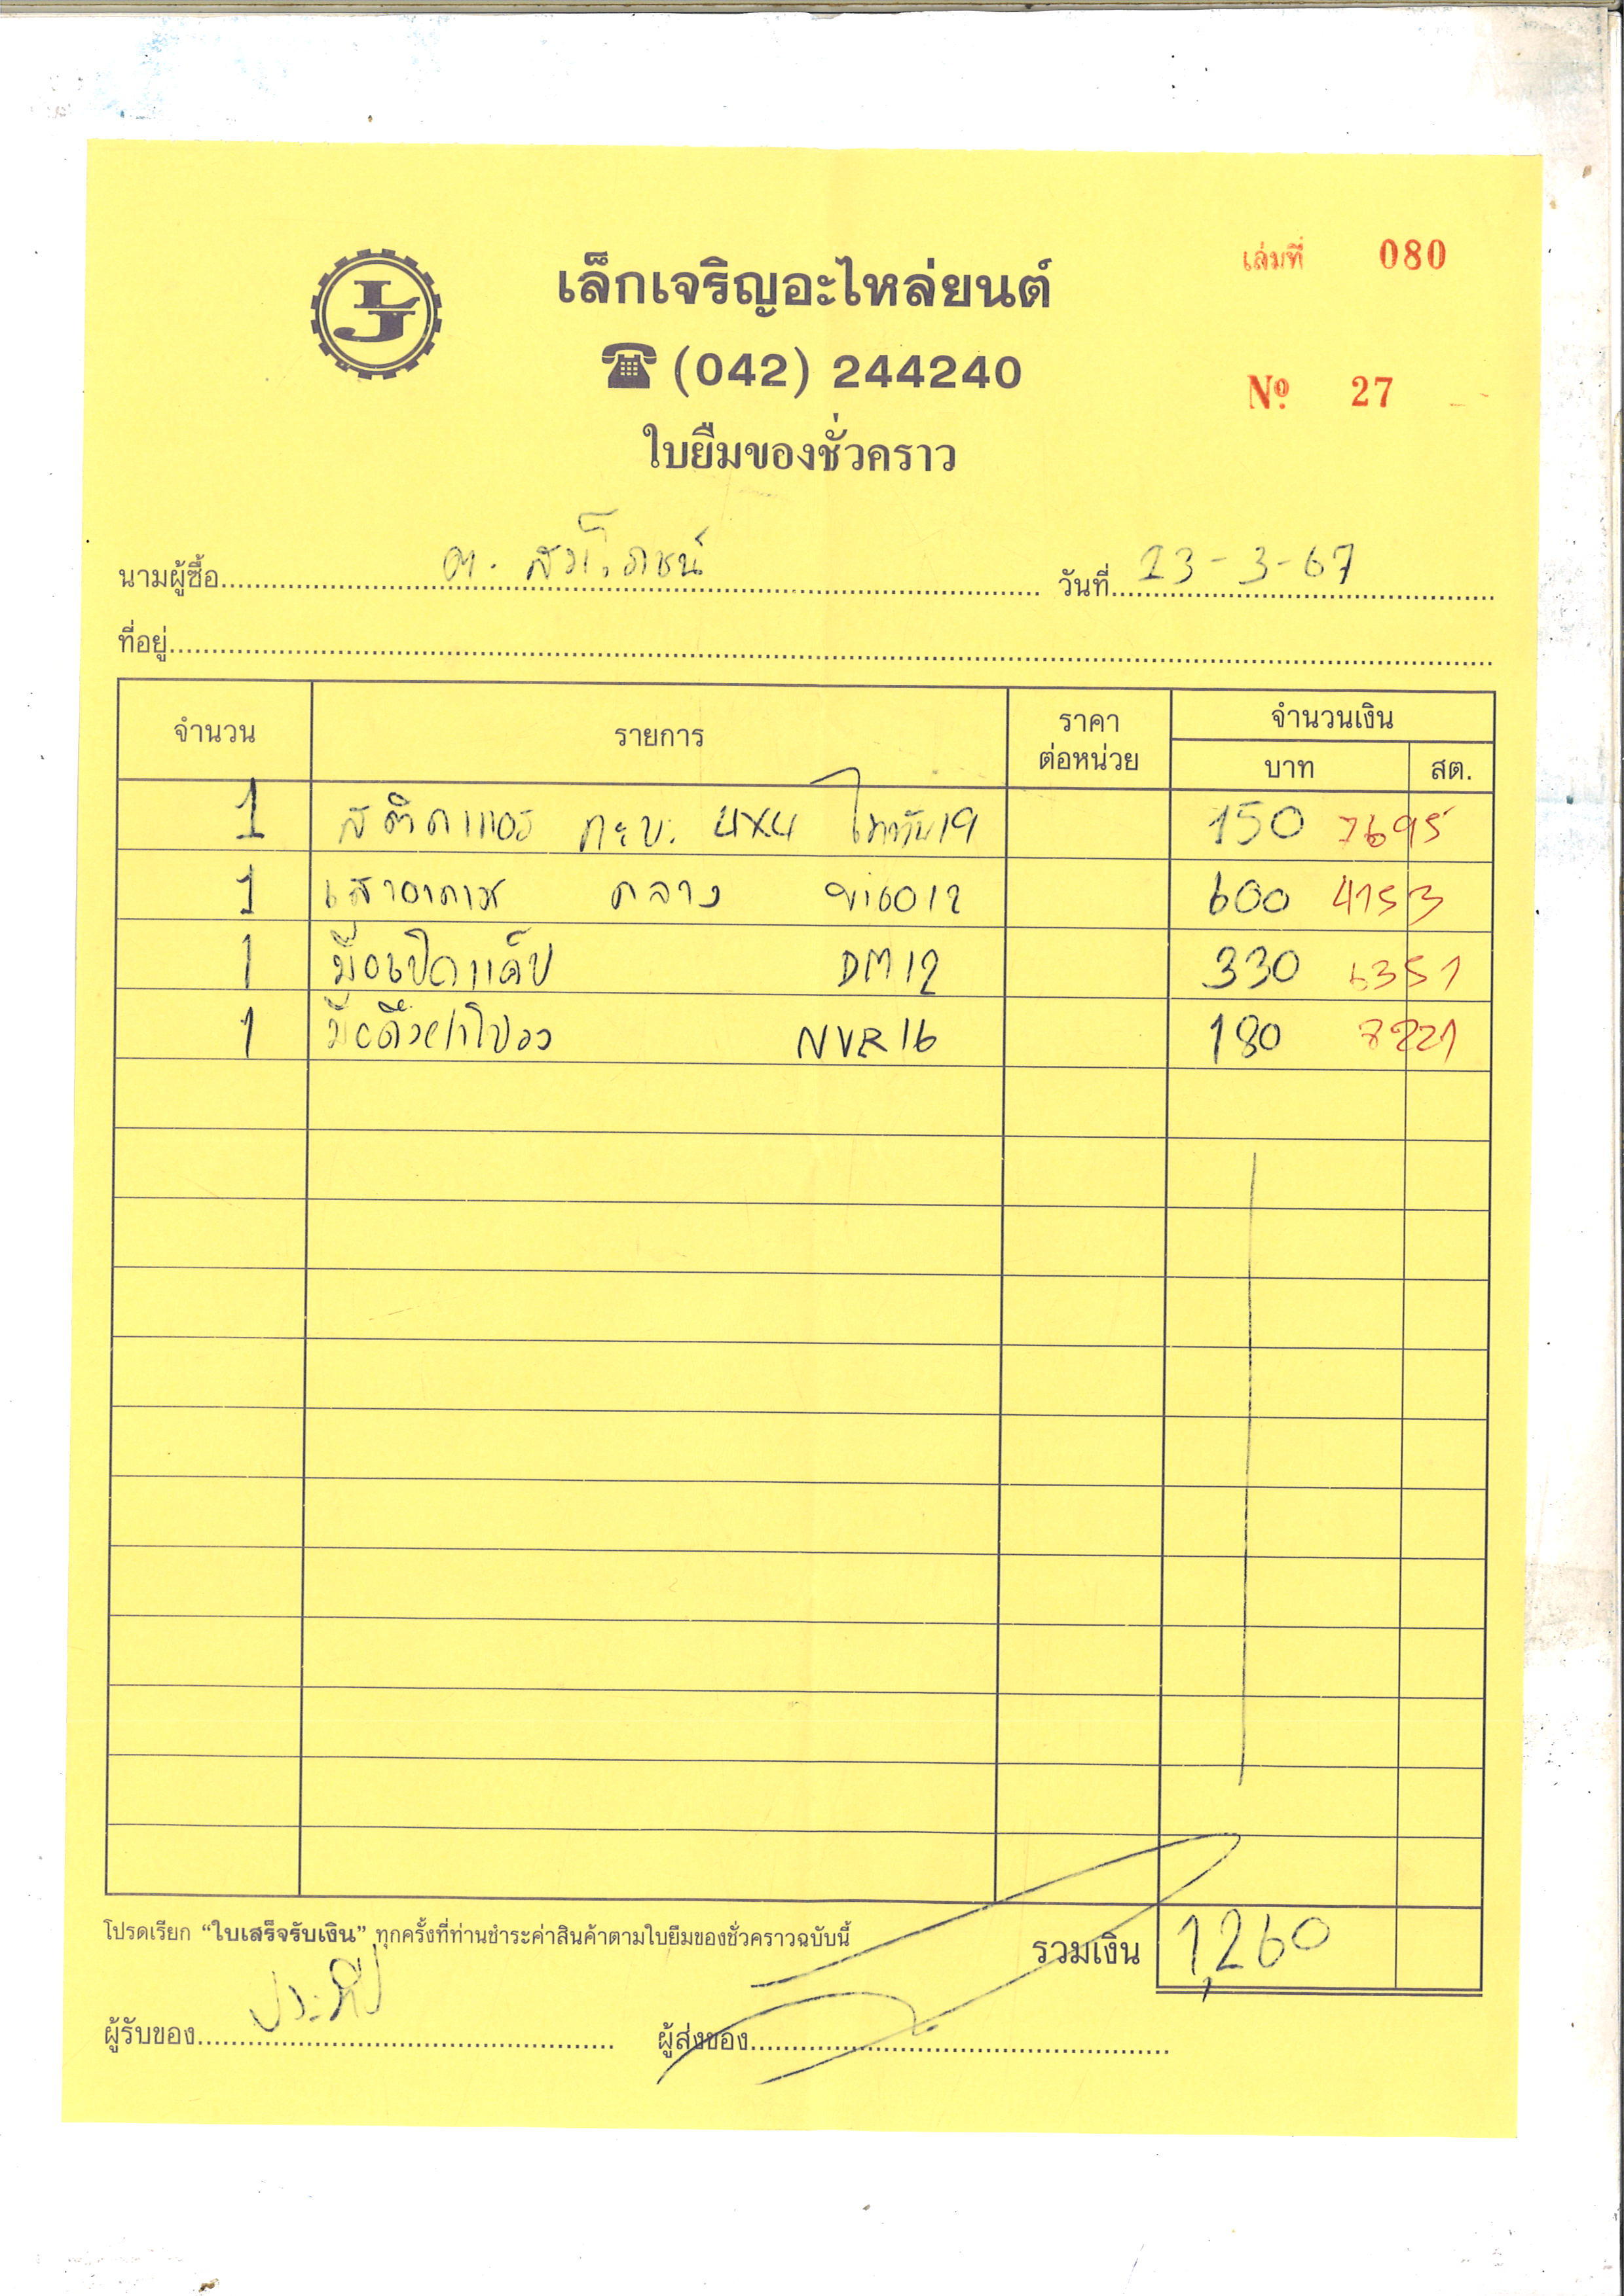 เล่มที่ 080
LJ
เล็กเจริญอะไหล่ยนต์
☎ (042) 244240
Nº 27
ใบยืมของชั่วคราว
นามผู้ซื้อ วันที่ 23-3-67
ที่อยู่
จำนวน รายการ ราคาต่อหน่วย จำนวนเงิน
บาท สต.
1 สติกเกอร์ กะบะ 4x4 ไททัน19 150 7695
1 เสาอากาศ กลาง วีโก้12 600 4153
1 มือเปิดแค็ป DM12 330 6351
1 NVR16 180 7221
โปรดเรียก “ใบเสร็จรับเงิน” ทุกครั้งที่ท่านชำระค่าสินค้าตามใบยืมของชั่วคราวฉบับนี้
รวมเงิน 1,260
ผู้รับของ ประทีป ผู้ส่งของ